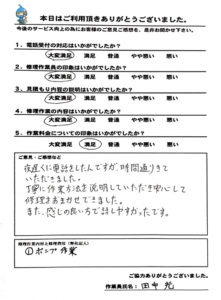 本日はご利用頂きありがとうございました。
今後のサービス向上の為にお客様のご意見ご感想を、是非お聞かせ下さい。
1．電話受付の対応はいかがでしたか？
大変満足 満足 普通 やや悪い 悪い
2．修理作業員の印象はいかがでしたか？
大変満足 満足 普通 やや悪い 悪い
3．見積もり内容の説明はいかがでしたか？
大変満足 満足 普通 やや悪い 悪い
4．修理作業の内容はいかがでしたか？
大変満足 満足 普通 やや悪い 悪い
5．作業料金についての印象はいかがでしたか？
大変満足 満足 普通 やや悪い 悪い
ご意見・ご感想など
夜遅くに電話をしたんですが、時間通りきて
いただきました。
丁寧に作業方法を説明していただき安心して
修理をおまかせできました。
また、感じの良い方で話しやすかったです。
修理作業内容と修理費用（弊社記入）
①ポンプ作業
ご協力ありがとうございました。
作業員氏名：田中